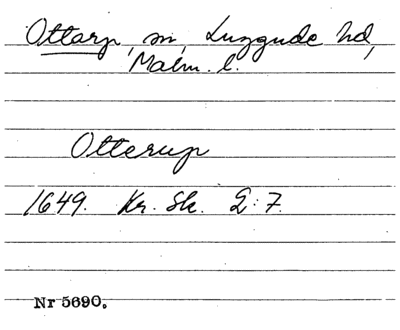 Ottarp, sn, Luggude hd,
Malm. l.
Otterup
1649. Kr. Sk. Q:7.
Nr 5690.